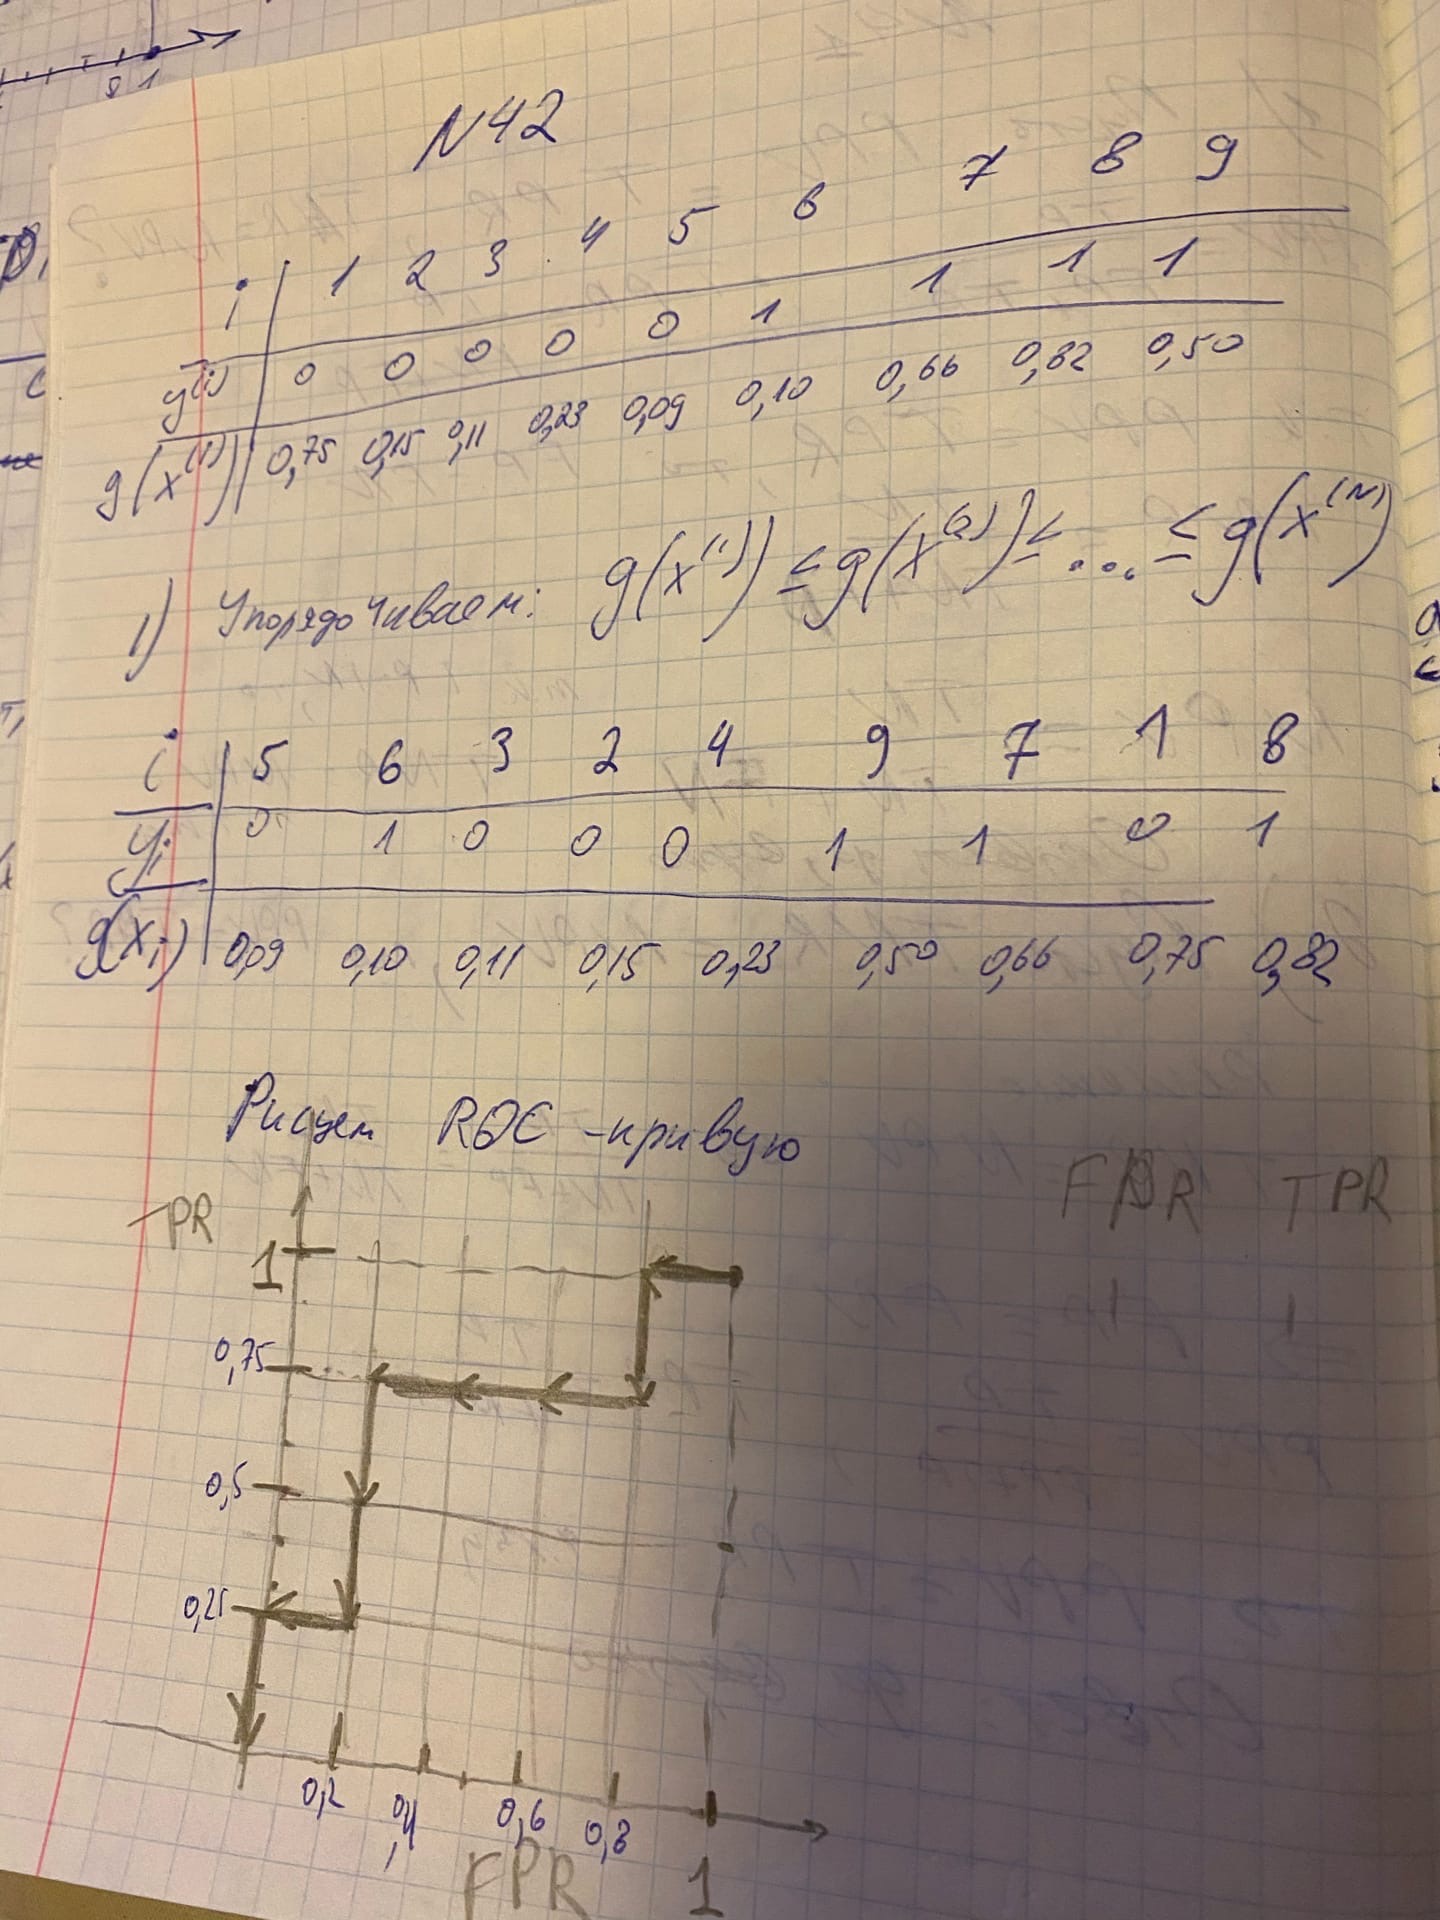 8 1
N42
i 1 2 3 4 5 6 7 8 9
y(i) 0 0 0 0 0 1 1 1 1
g(x(i)) 0,75 0,15 0,11 0,23 0,09 0,10 0,66 0,82 0,50
1) Упорядочиваем: g(x(1)) ≤ g(x(2)) ≤ ... ≤ g(x(N))
i 5 6 3 2 4 9 7 1 8
yi 0 1 0 0 0 1 1 0 1
g(xi) 0,09 0,10 0,11 0,15 0,23 0,50 0,66 0,75 0,82
Рисуем ROC-кривую
TPR
FPR TPR
1
0,75
0,5
0,25
0,2 0,4 0,6 0,8
FPR 1